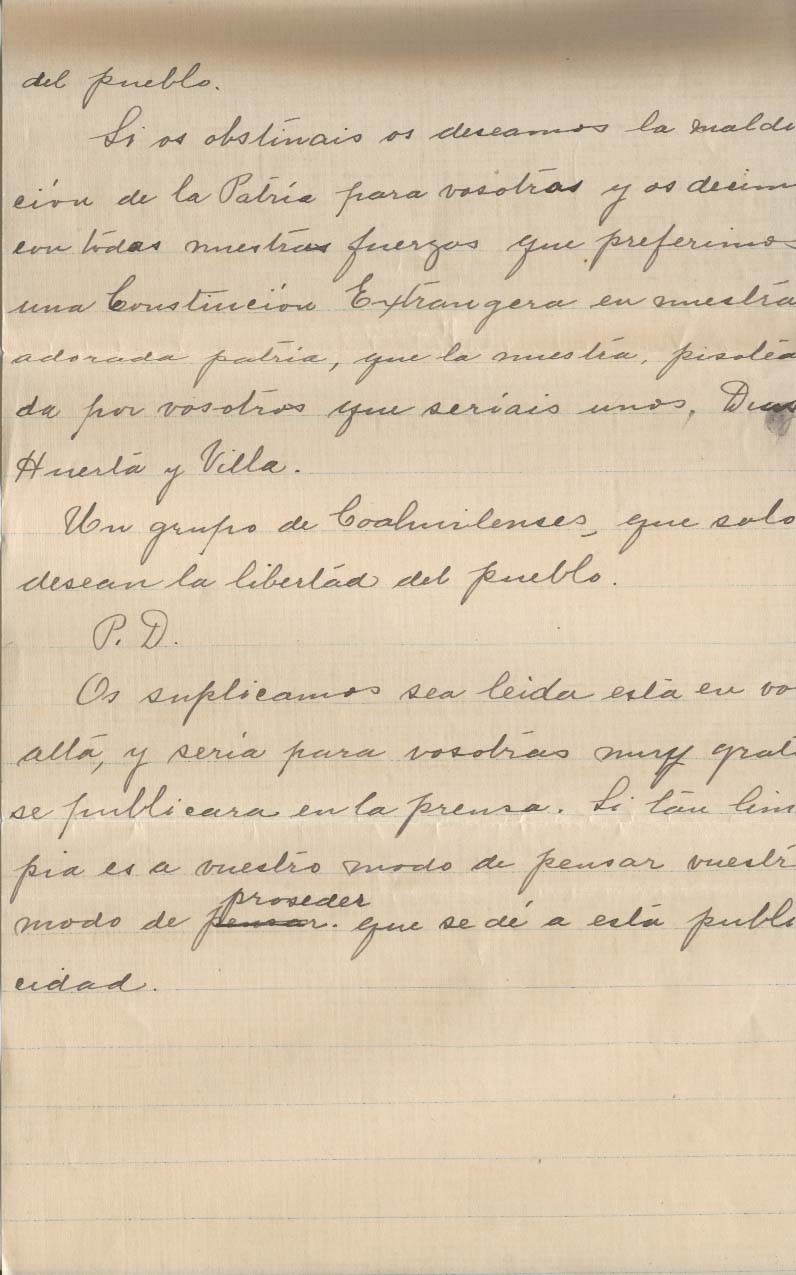 del pueblo.
Si os obstinais os deseamos la maldi
ción de la Patria para vosotros y os decim
con todas nuestras fuerzas que preferimos
una Constinción Extrangera en nuestra
adorada patria, que la nuestra, pisotea
da por vosotros que seriais unos,
Huerta y Villa.
Un grupo de Coahuilenses, que solo
desean la libertad del pueblo.
P. D.
Os suplicamos sea leida esta en vo
alta, y seria para vosotros muy grat
se publicara en la prensa. Si tan lim
pia es a vuestro modo de pensar vuestr
modo de pensar. proseder que se dé a esta publi
cidad.